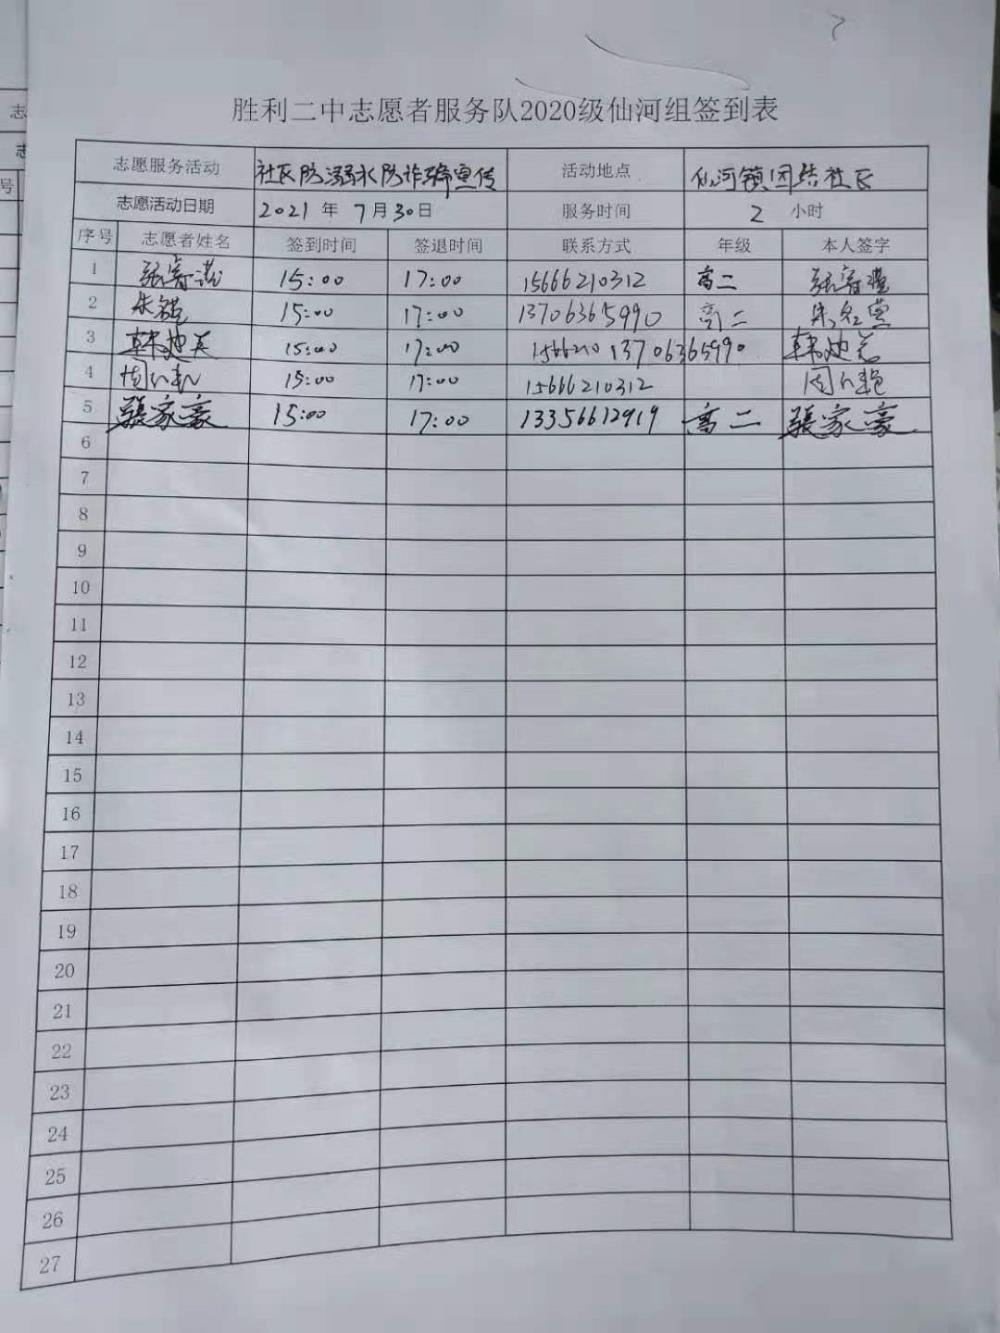 胜利二中志愿者服务队2020级仙河组签到表
志愿服务活动 社区防溺水防诈骗宣传 活动地点 仙河镇团结社区
志愿活动日期 2021 年 7 月 30 日 服务时间 2 小时
序号 志愿者姓名 签到时间 签退时间 联系方式 年级 本人签字
1 张 15:00 17:00 15666210312 高二 张
2 朱 15:00 17:00 13706365990 高二 朱
3 韩 15:00 17:00 1566210 13706365990 韩
4 周 15:00 17:00 15666210312 周
5 張家豪 15:00 17:00 13356612919 高二 張家豪
6
7
8
9
10
11
12
13
14
15
16
17
18
19
20
21
22
23
24
25
26
27